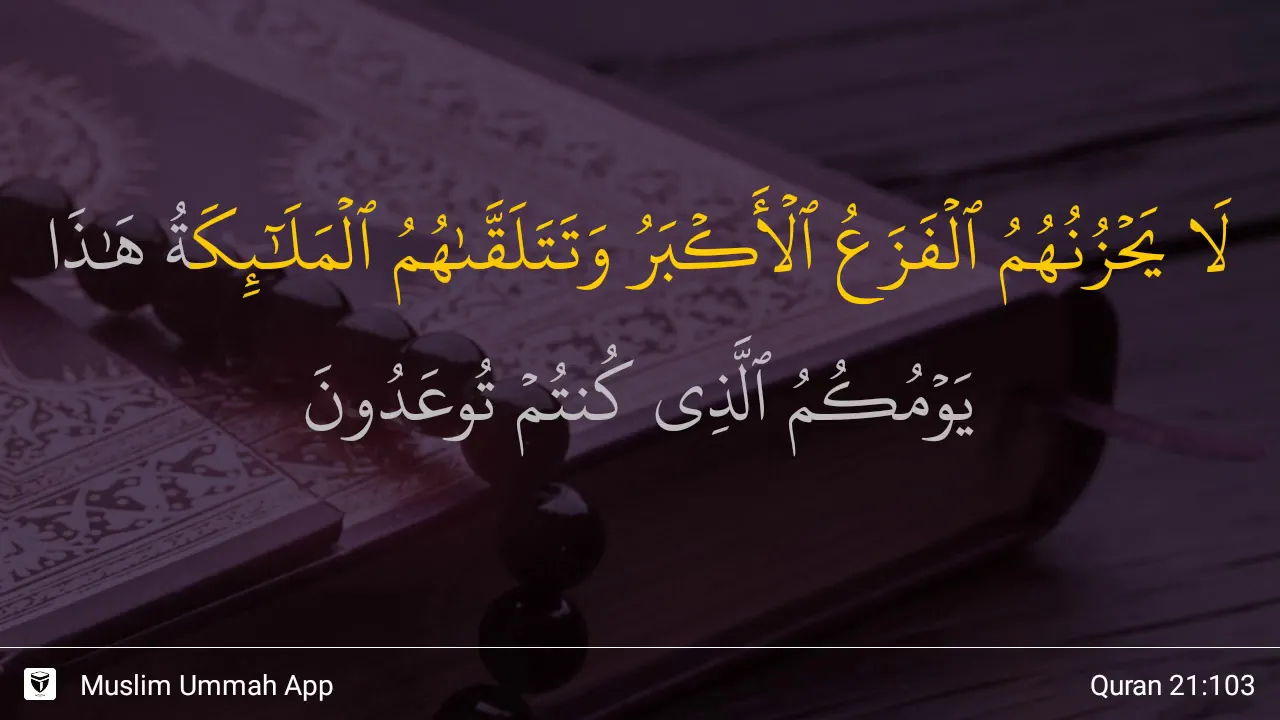 لَا يَحْزُنُهُمُ ٱلْفَزَعُ ٱلْأَكْبَرُ وَتَتَلَقَّىٰهُمُ ٱلْمَلَـٰٓئِكَةُ هَـٰذَا
يَوْمُكُمُ ٱلَّذِى كُنتُمْ تُوعَدُونَ
Muslim Ummah App
Quran 21:103